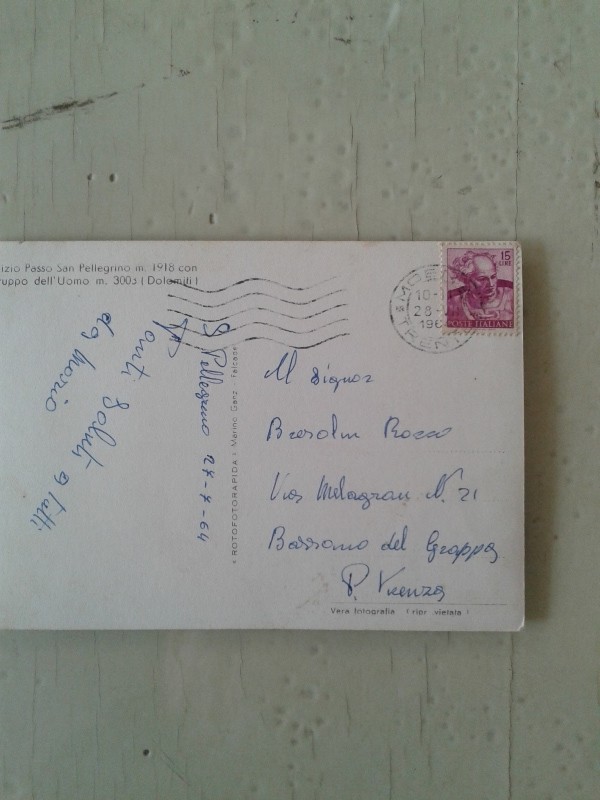 izio Passo San Pellegrino m. 1918 con
ruppo dell'Uomo m. 3003 (Dolomiti)
S. Pellegrino 27-7-64
Tanti Saluti a tutti
da Mario
ROTOFOTORAPIDA Marino Ganz - Falcade
15
LIRE
POSTE ITALIANE
MO
10-
28-
196
TREN
Al Signor
Bresolin Rocco
Via Melagrani N. 21
Bassano del Grappa
P. Vicenza
Vera fotografia (ripr. vietata)